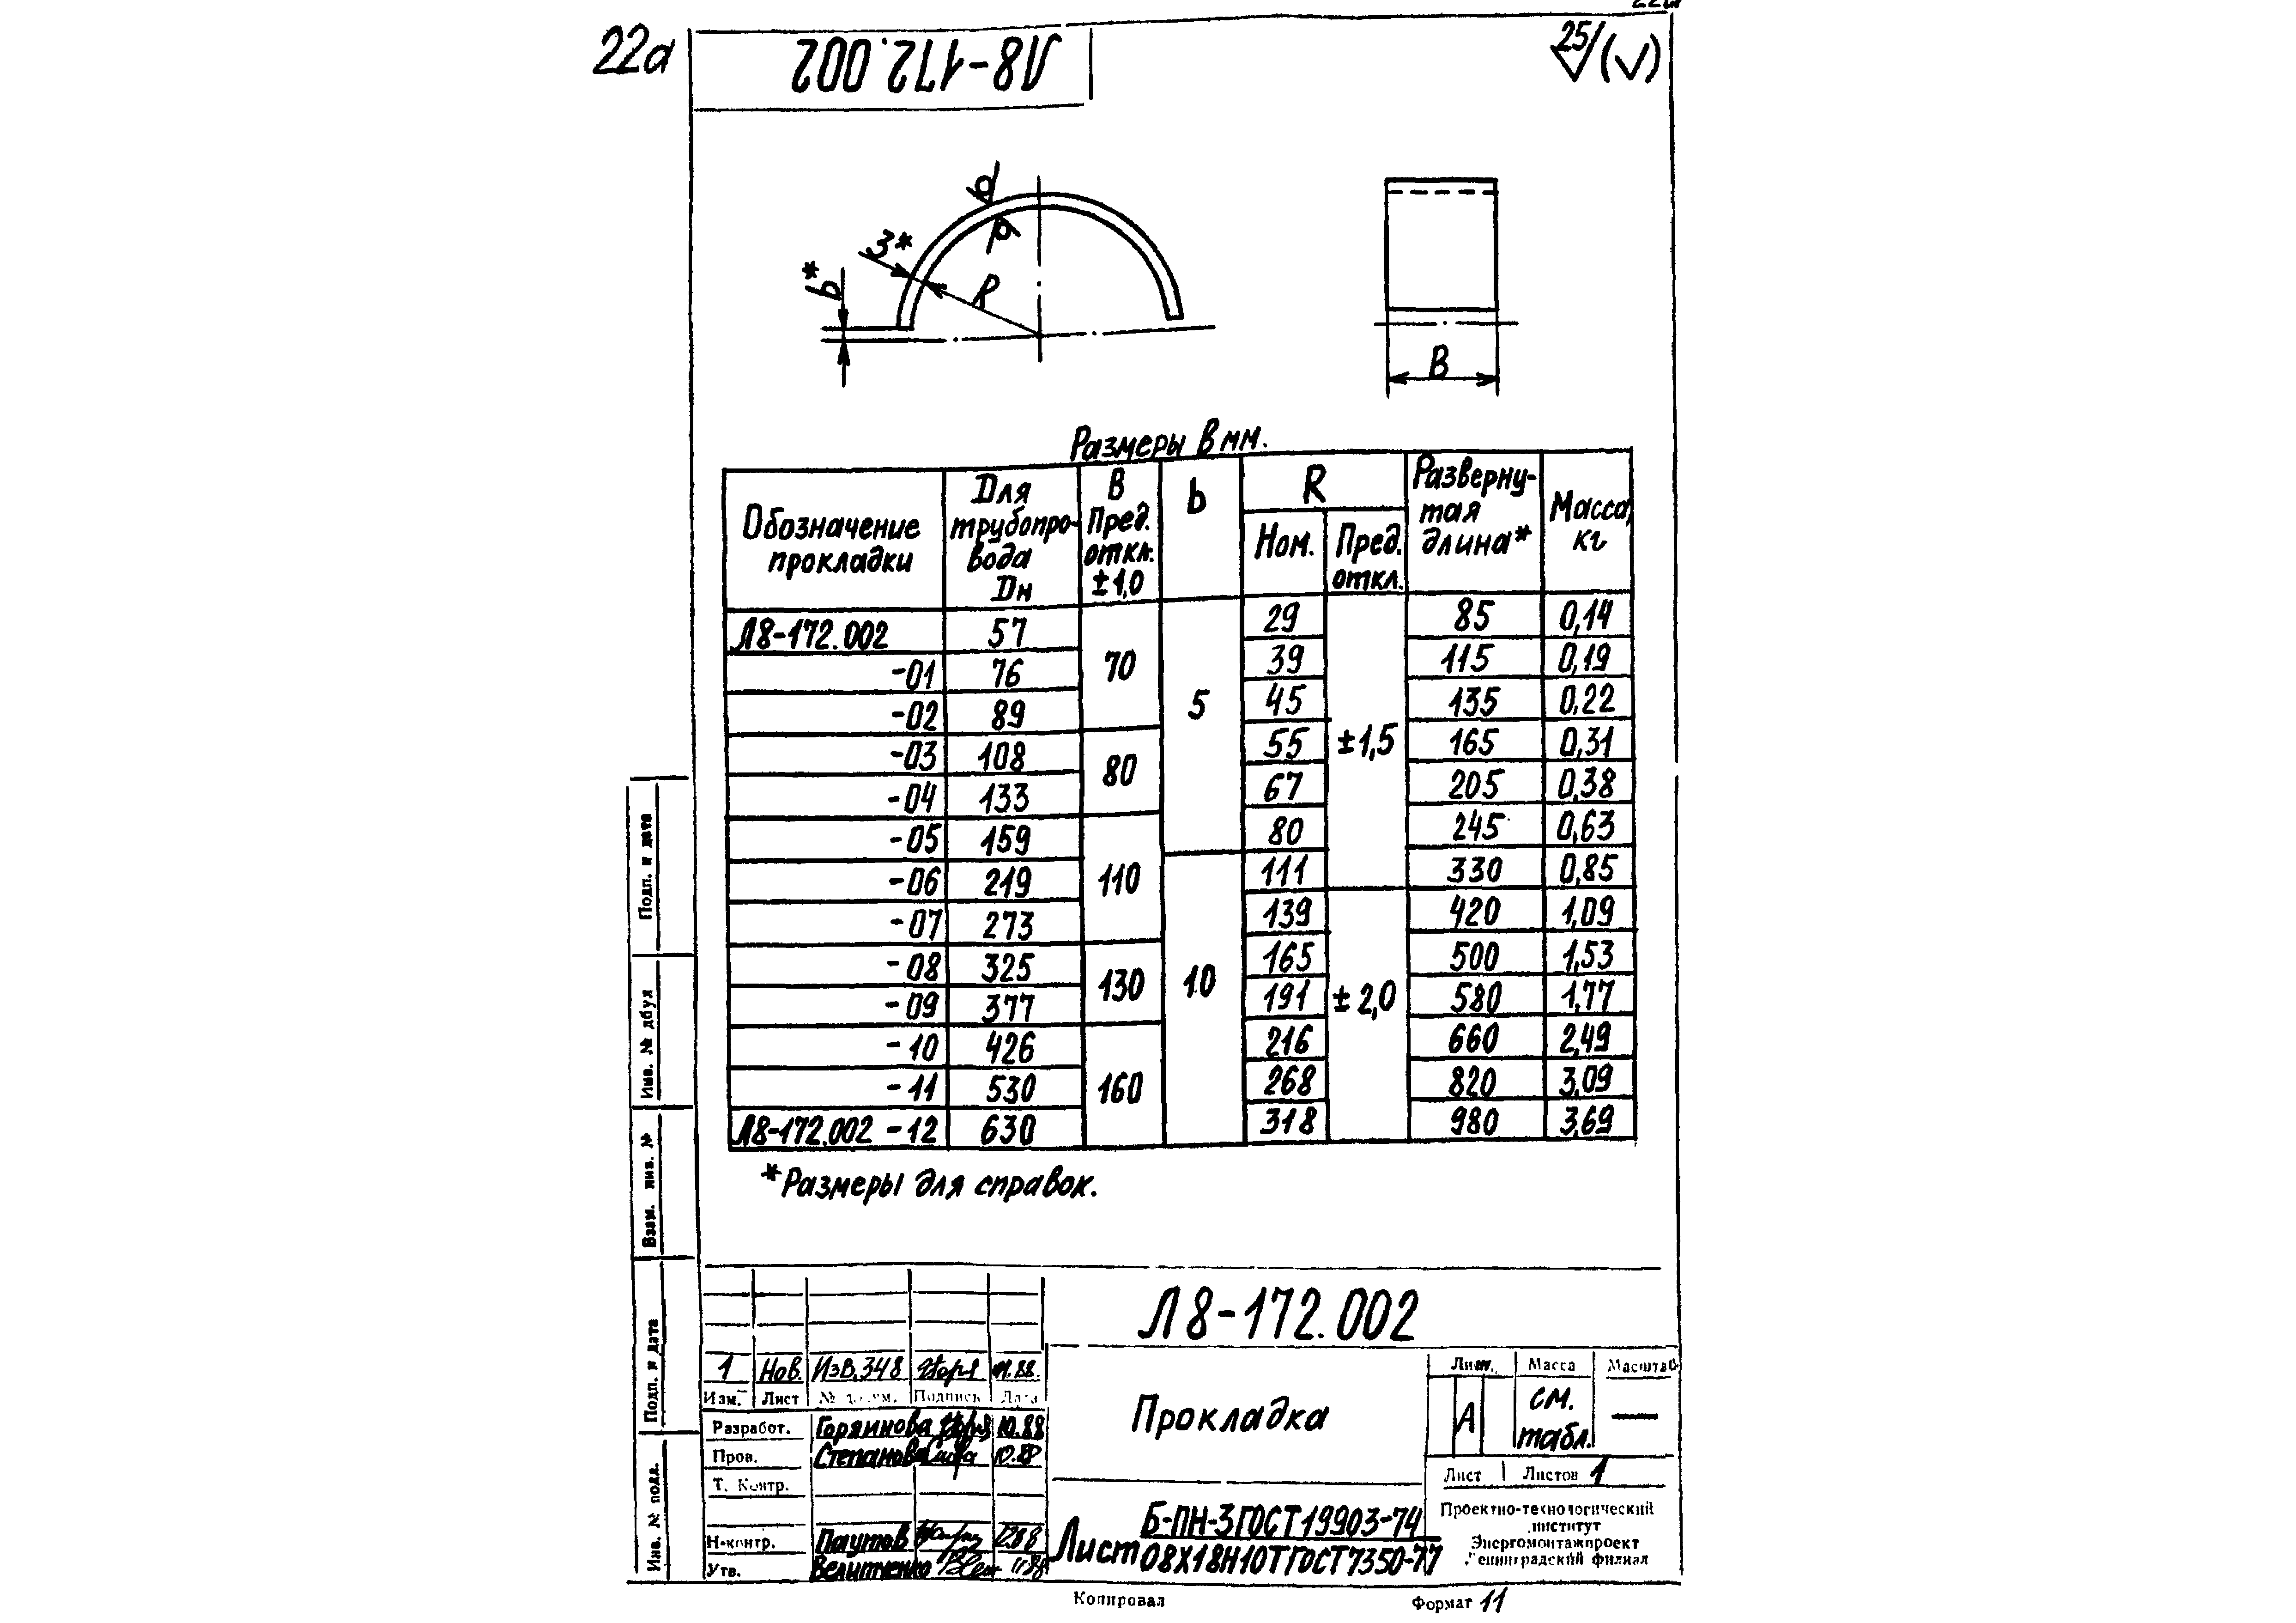 22а
Л8-172.002
25/(√)
3*
b*
R
B
Размеры в мм.
Обозначение прокладки | Для трубопро-вода Dн | В Пред. откл. ±1,0 | b | R Ном. | R Пред. откл. | Разверну-тая длина* | Масса, кг
Л8-172.002 | 57 | 70 | 5 | 29 | ±1,5 | 85 | 0,14
-01 | 76 | 39 | 115 | 0,19
-02 | 89 | 45 | 135 | 0,22
-03 | 108 | 80 | 55 | 165 | 0,31
-04 | 133 | 67 | 205 | 0,38
-05 | 159 | 110 | 80 | 245 | 0,63
-06 | 219 | 10 | 111 | 330 | 0,85
-07 | 273 | 139 | ±2,0 | 420 | 1,09
-08 | 325 | 130 | 165 | 500 | 1,53
-09 | 377 | 191 | 580 | 1,77
-10 | 426 | 160 | 216 | 660 | 2,49
-11 | 530 | 268 | 820 | 3,09
Л8-172.002 -12 | 630 | 318 | 980 | 3,69
*Размеры для справок.
Подп. и дата
Инв. № дубл
Взам. инв. №
Подп. и дата
Инв. № подл.
Л8-172.002
1 Нов. Изв.348
Изм. Лист № докум. Подпись Дата
Разработ. Горяинова 10.88
Пров. Степанова 10.88
Т. Контр.
Н-контр. Паутов
Утв.
Прокладка
Лит. Масса Масштаб
А см. табл. —
Лист Листов 1
Лист Б-ПН-3 ГОСТ 19903-74
08Х18Н10Т ГОСТ 7350-77
Проектно-технологический
институт
Энергомонтажпроект
Ленинградский филиал
Копировал
Формат 11